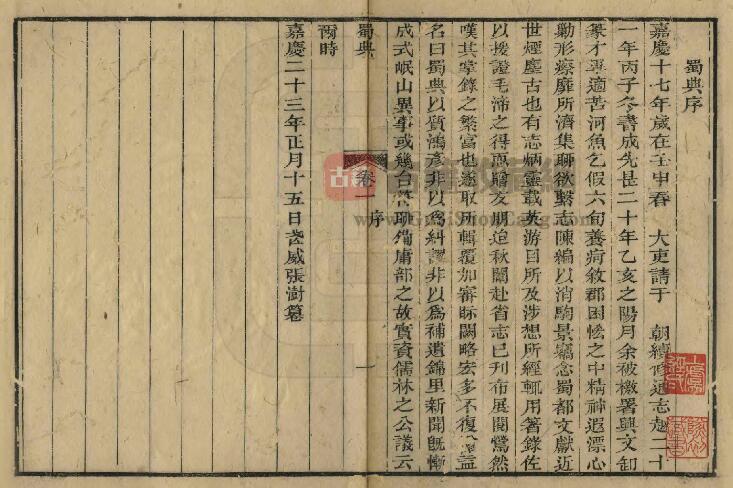 蜀典序
嘉慶十七年歲在壬申春 大吏請于 朝續修通志越二十
一年丙子冬書成先是二十年乙亥之陽月余被檄署興文卸
篆才再適苦河魚乞假六旬養疴敘郡困悋之中精神遐漂心
勦形瘵靡所濟集聊欲繫志陳編以消駒景竊念蜀都文獻近
世煙塵古也有志炳靈載英游目所及涉想所經輒用箸錄佐
以援證毛滯之得而贍友朋迫秋闈赴省志已刊布展閱鶯然
嘆其掌錄之繁富也遂取所輯覆加審眎闕略宏多不復 益
名曰蜀典以質鴻彥非以爲糾謬非以爲補遺錦里新聞旣慚
成式岷山異事或幾台符聊備庸部之故實資儒林之公議云
爾時
嘉慶二十三年正月十五日武威張澍篡
蜀典
卷一
序
一